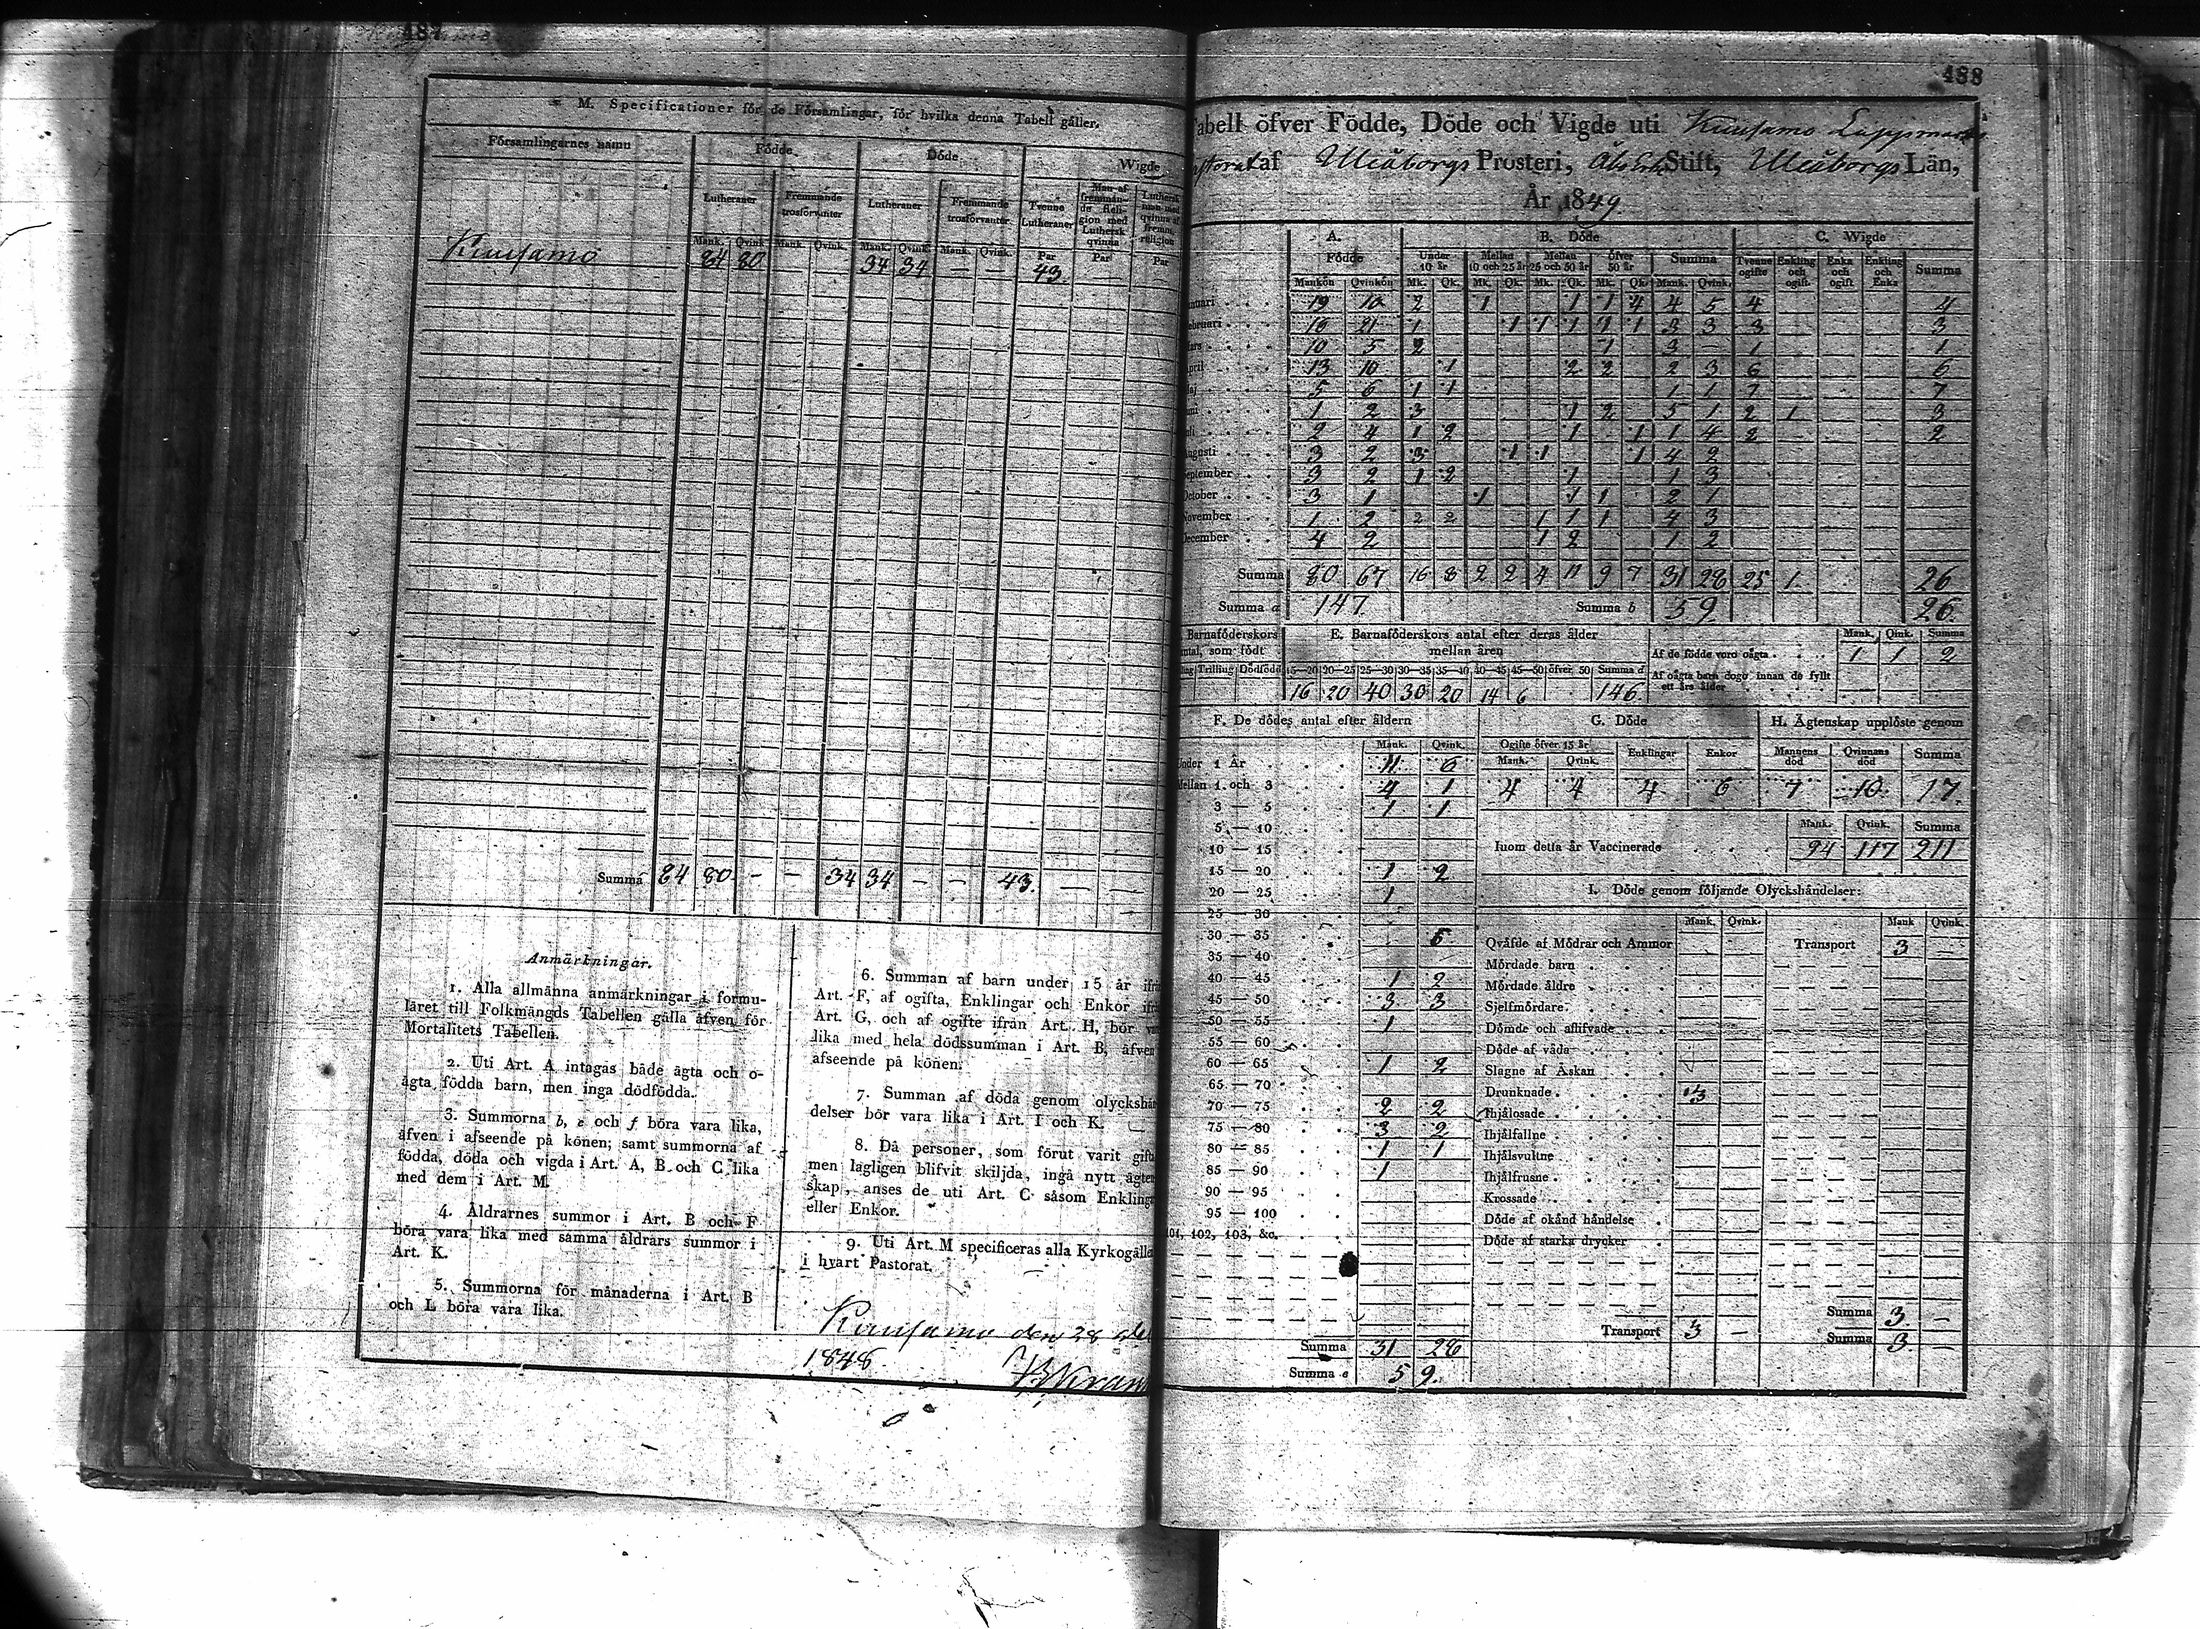 487
M. Specificationer för de Församlingar, för hvilka denna Tabell gäller.
Församlingarnes namn Födde Döde Wigde
Lutheraner Fremmande trosförvanter Lutheraner Fremmande trosförvanter Tvenne Lutheraner Man af fremmande Religion med Luthersk qvinna
Mank. Qvink. Mank. Qvink. Mank. Qvink. Mank. Qvink. Par Par Par
Kuusamo 84 80 34 34 — — 43. — —
Summa 84 80 - - 34 34 - - 43. — —
Anmärkningar.
1. Alla allmänna anmärkningar i formu-
läret till Folkmängds Tabellen gälla äfven för
Mortalitets Tabellen.
2. Uti Art. A intagas både ägta och o-
ägta födda barn, men inga dödfödda.
3. Summorna b, e och f böra vara lika,
äfven i afseende på könen; samt summorna af
födda, döda och vigda i Art. A, B och C lika
med dem i Art. M.
4. Åldrarnes summor i Art. B och F
böra vara lika med samma åldrars summor i
Art. K.
5. Summorna för månaderna i Art. B
och L böra vara lika.
6. Summan af barn under 15 år
Art. F, af ogifta, Enklingar och Enkor
Art. G, och af ogifte ifrån Art. H, bör
lika med hela dödssumman i Art. B, äfven
afseende på könen.
7. Summan af döda genom olyckshän
delser bör vara lika i Art. I och K.
8. Då personer, som förut varit gift
men lagligen blifvit skiljda, ingå nytt ägten
skap, anses de uti Art. C såsom Enkling
eller Enkor.
9. Uti Art. M specificeras alla Kyrkogäll
i hvart Pastorat.
Kuusamo den 28
1848.
488
Tabell öfver Födde, Döde och Vigde uti Kuusamo Lappmarks
Pastorat af Uleåborgs Prosteri, Åbo Erke Stift, Uleåborgs Län,
År 1849.
A. B. Döde C. Wigde
Födde Under 10 år Mellan 10 och 25 år Mellan 25 och 50 år öfver 50 år Summa Tvenne ogifte Enkling och ogift Enka och ogift Enkling och Enka Summa
Mankön Qvinkön Mk. Qk. Mk. Qk. Mk. Qk. Mk. Qk. Mank. Qvink.
Januari 19 10 2 1 1 1 4 4 5 4 4
Februari 16 21 1 1 1 1 1 1 3 3 3 3
Mars 10 5 2 1 3 – 1 1
April 13 10 1 2 2 2 3 6 6
Maj 5 6 1 1 1 1 7 7
Juni 1 2 3 1 2 5 1 2 1 3
Juli 2 4 1 2 1 1 1 4 2 2
Augusti 3 2 3 1 1 1 4 2
September 3 2 1 2 1 1 3
October 3 1 1 1 1 2 1
November 1 2 2 2 1 1 1 4 3
December 4 2 1 2 1 2
Summa 80 67 16 8 2 2 4 11 9 7 31 28 25 1. 26
Summa a 147 Summa b 59. 26.
Barnaföderskors antal, som födt E. Barnaföderskors antal efter deras ålder mellan åren Mank. Qink. Summa
Trilling Dödfödd 15—20 20—25 25—30 30—35 35—40 40—45 45—50 öfver 50 Summa d
16 20 40 30 20 14 6 146.
Af de födde voro oägta 1 1 2
Af oägta barn dogo innan de fyllt ett års ålder
F. De dödes antal efter åldern G. Döde H. Ägtenskap upplöste genom
Mank. Qvink. Ogifte öfver 15 år Enklingar Enkor Mannens död Qvinnans död Summa
Mank. Qvink.
4 4 4 6 7 10 17.
Under 1 År 11 6
Mellan 1 och 3 4 1
3 — 5 1 1
5 — 10
10 — 15
15 — 20 1 2
20 — 25 1
25 — 30
30 — 35 5
35 — 40
40 — 45 1 2
45 — 50 3 3
50 — 55 1
55 — 60
60 — 65 1 2
65 — 70
70 — 75 2 2
75 — 80 3 2
80 — 85 1 1
85 — 90 1
90 — 95
95 — 100
101, 102, 103, &c.
Summa 31 28
Summa e 59.
Mank. Qvink. Summa
Inom detta år Vaccinerade 94 117 211
I. Döde genom följande Olyckshändelser:
Mank. Qvink. Mank Qvink.
Qväfde af Mödrar och Ammor Transport 3 —
Mördade barn
Mördade äldre
Sjelfmördare
Dömde och aflifvade
Döde af våda
Slagne af Åskan
Drunknade 3
Ihjälosade
Ihjälfallne
Ihjälsvultne
Ihjälfrusne
Krossade
Döde af okänd händelse
Döde af starka drycker
Summa 3. —
Transport 3 — Summa 3 —